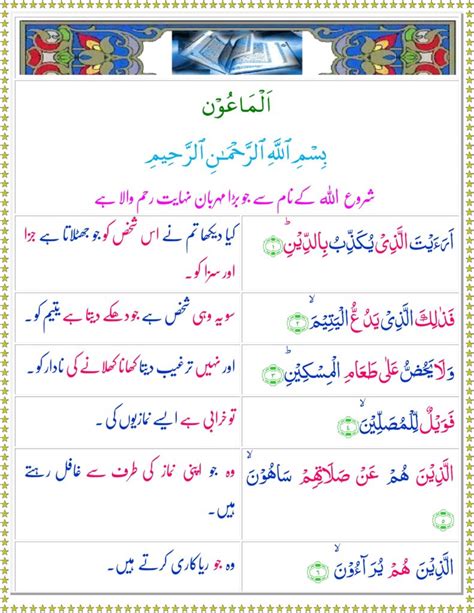 اَلْمَاعُوْن
بِسْمِ ٱللَّهِ ٱلرَّحْمَٰنِ ٱلرَّحِيمِ
شروع اللہ کے نام سے جو بڑا مہربان نہایت رحم والا ہے
اَرَءَيْتَ الَّذِىْ يُكَذِّبُ بِالدِّيْنِؕ ۱
کیا دیکھا تم نے اس شخص کو جو جھٹلاتا ہے جزا
اور سزا کو۔
فَذٰلِكَ الَّذِىْ يَدُعُّ الْيَتِيْمَۙ ۲
سو یہ وہی شخص ہے جو دھکے دیتا ہے یتیم کو۔
وَلَا يَحُضُّ عَلٰى طَعَامِ الْمِسْكِيْنِؕ ۳
اور نہیں ترغیب دیتا کھانا کھلانے کی نادار کو۔
فَوَيْلٌ لِّلْمُصَلِّيْنَۙ ۴
تو خرابی ہے ایسے نمازیوں کی ۔
الَّذِيْنَ هُمْ عَنْ صَلَاتِهِمْ سَاهُوْنَۙ
۵
وہ جو اپنی نماز کی طرف سے غافل رہتے
ہیں۔
الَّذِيْنَ هُمْ يُرَآءُوْنَۙ ۶
وہ جو ریاکاری کرتے ہیں۔